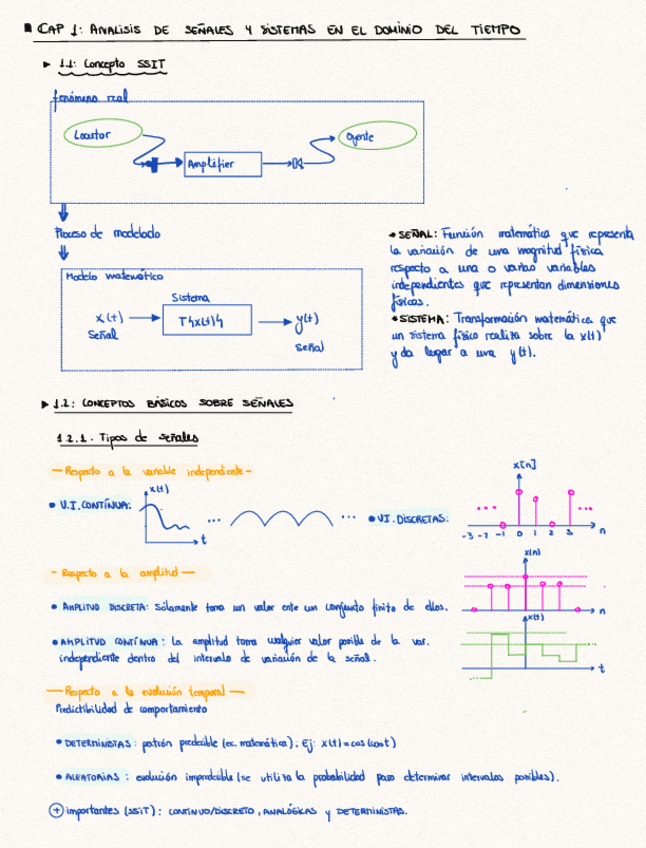 CAP 1: ANALISIS DE SEÑALES Y SISTEMAS EN EL DOMINIO DEL TIEMPO
1.1: Concepto SSIT
fenómeno real
Locutor
Amplifier
Oyente
Proceso de modelado
Modelo matemático
Sistema
x(t)
T{x(t)}
y(t)
Señal
señal
• SEÑAL: Función matemática que representa
la variación de una magnitud física
respecto a una o varias variables
independientes que representan dimensiones
físicas.
• SISTEMA: Transformación matemática que
un sistema físico realiza sobre la x(t)
y da lugar a una y(t).
1.2: CONCEPTOS BÁSICOS SOBRE SEÑALES
1.2.1. Tipos de señales
- Respecto a la variable independiente -
• V.I. CONTÍNUA:
x(t)
t
...
...
• VI. DISCRETAS:
x[n]
...
...
-3 -2 -1 0 1 2 3
n
- Respecto a la amplitud -
x[n]
n
• AMPLITUD DISCRETA: Sólamente toma un valor ente un conjunto finito de ellos.
x(t)
t
• AMPLITUD CONTÍNUA: La amplitud toma cualquier valor posible de la var.
independiente dentro del intervalo de variación de la señal.
- Respecto a la evolución temporal -
Predictibilidad de comportamiento
• DETERMINISTAS: patrón predecible (ec. matemática); Ej: x(t) = cos(ωot)
• ALEATORIAS: evolución impredecible (se utiliza la probabilidad para determinar intervalos posibles).
+ importantes (SSIT): CONTINUO/DISCRETO, ANALÓGICAS y DETERMINISTAS.